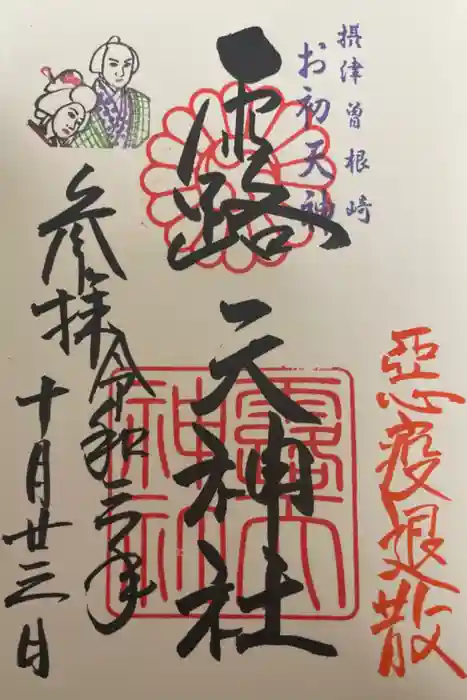 摂津曽根崎
お初天神
露
天神社
惡疫退散
参拝
令和三年
十月廿三日
露天神社